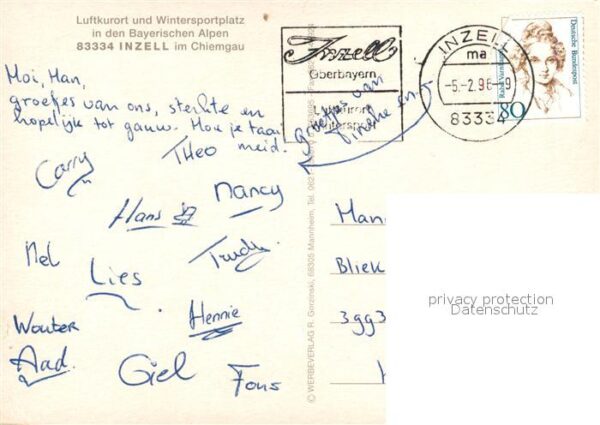 Luftkurort und Wintersportplatz
in den Bayerischen Alpen
83334 INZELL im Chiemgau
Moi, Han,
groetjes van ons, sterkte en
hopelijk tot gauw. Hou je taai
meid.
Groetjes van
Tineke en
Theo
Carry
Nancy
Hans
Nel
Trudy
Lies
Hennie
Wouter
Aad.
Giel
Fons
Inzell
Oberbayern
Luftkurort
Wintersport
INZELL
ma
-5.-2.96-9
83334
Deutsche Bundespost
80
© WERBEVERLAG R. Garzinski, 68305 Mannheim, Tel. 0621
Han
Bliek
3993
privacy protection
Datenschutz